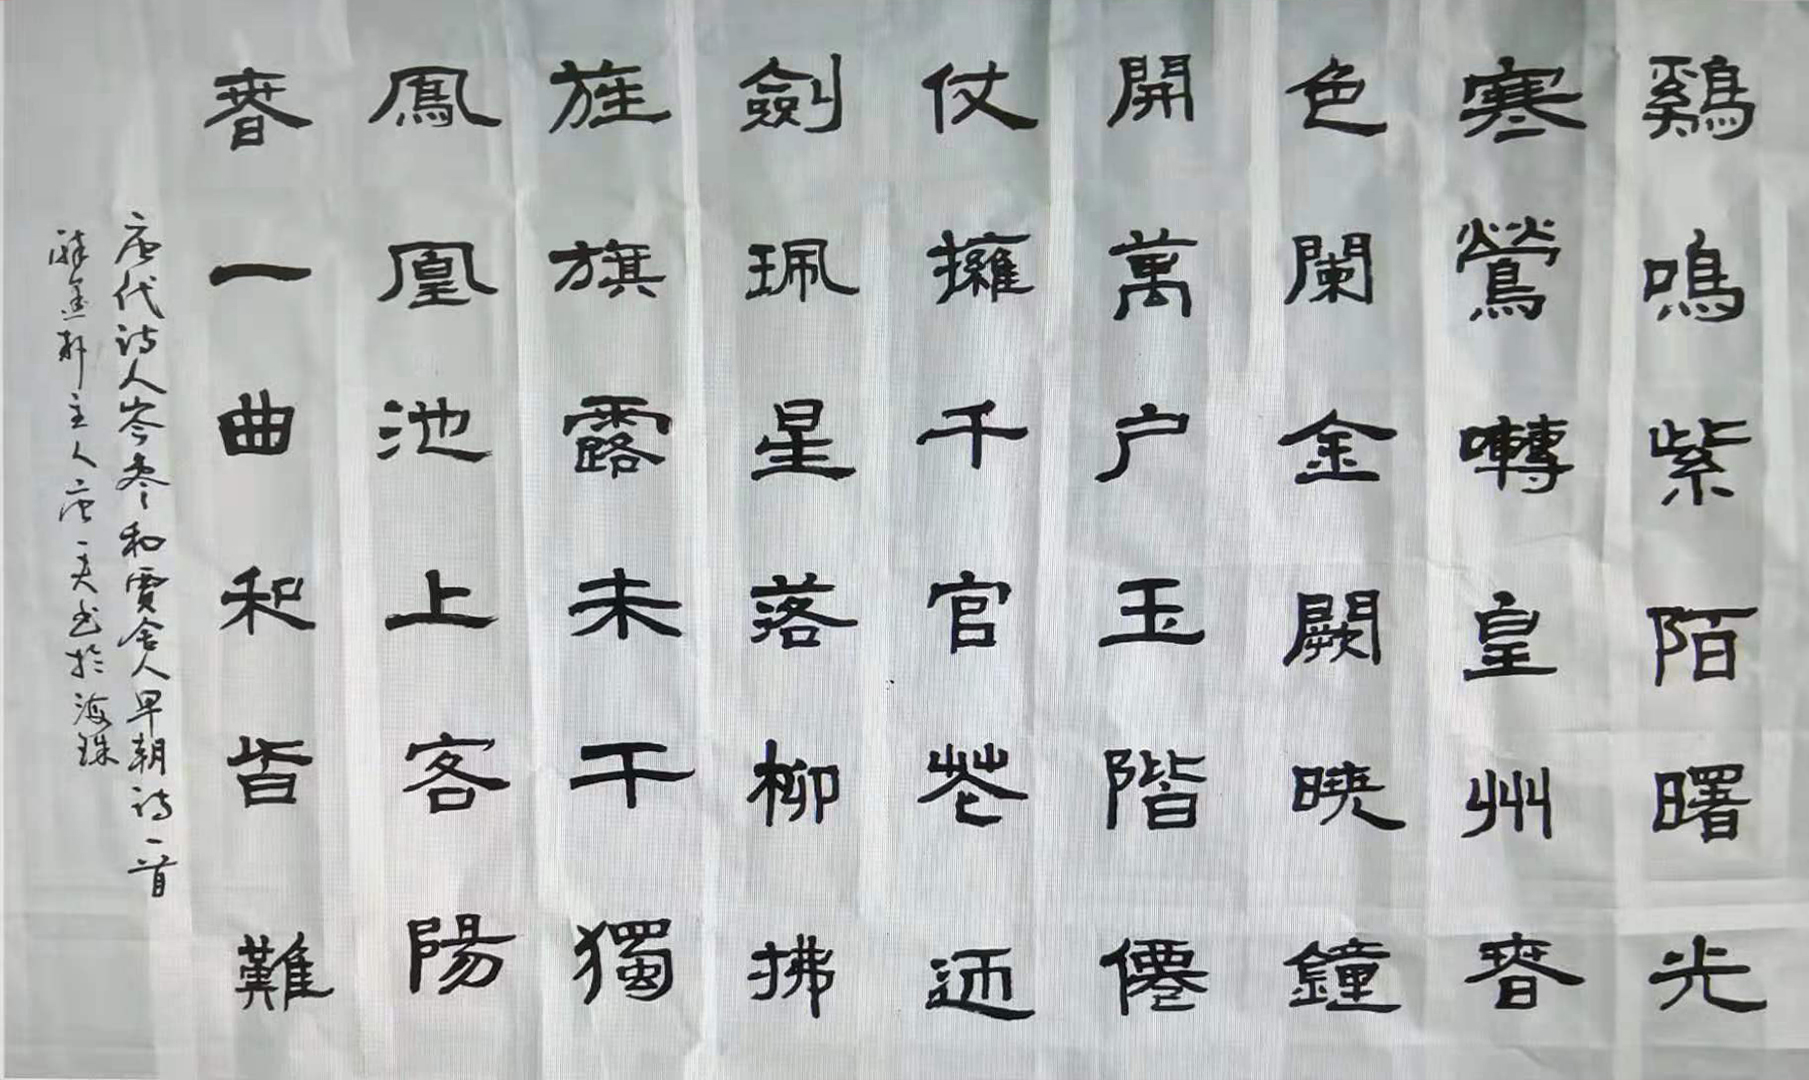 鷄鳴紫陌曙光
寒鶯囀皇州春
色闌金闕曉鐘
開萬户玉階僊
仗擁千官花迊
劍珮星落柳拂
旌旗露未干獨
鳳凰池上客陽
春一曲和皆難
唐代诗人岑参和賈舍人早朝诗一首
主人唐一夫书於海珠